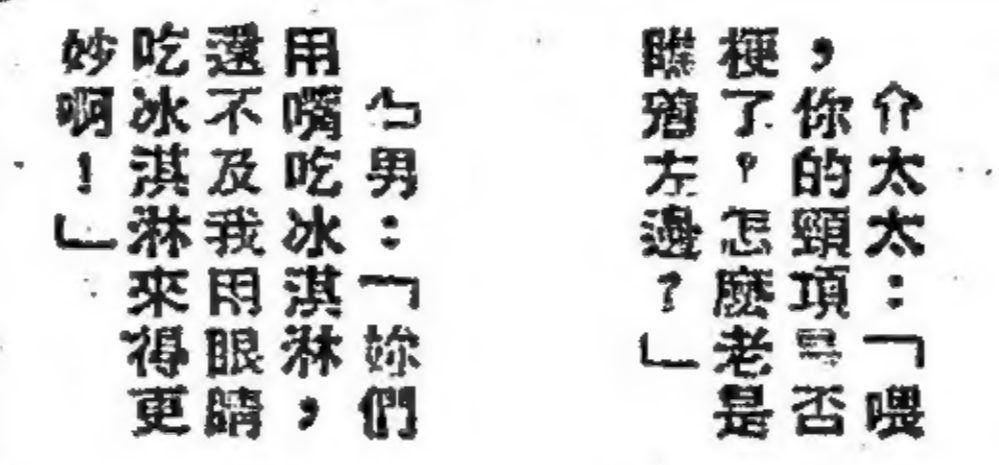 ⇧太太：「喂
，你的頸項是否
梗了？怎麼老是
瞧着左邊？」
⇦男：「妳們
用嘴吃冰淇淋，
還不及我用眼睛
吃冰淇淋來得更
妙啊！」